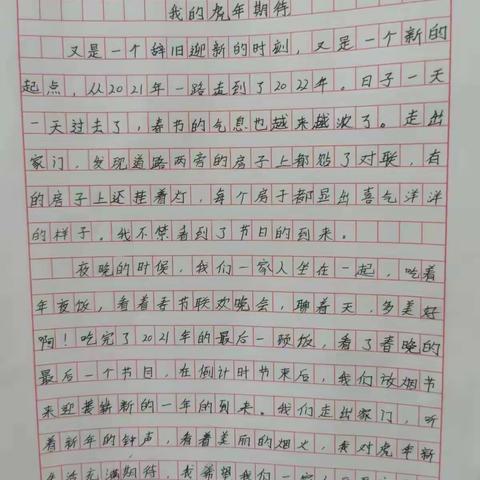 我的虎年期待
又是一个辞旧迎新的时刻，又是一个新的
起点，从2021年一路走到了2022年。日子一天
一天过去了，春节的气息也越来越浓了。走出
家门，发现道路两旁的房子上都贴了对联，有
的房子上还挂着灯，每个房子都显出喜气洋洋
的样子。我不禁看到了节日的到来。
夜晚的时候，我们一家人坐在一起，吃着
年夜饭，看着春节联欢晚会，聊着天，多美好
啊！吃完了2021年的最后一顿饭，看了春晚的
最后一个节目，在倒计时节束后，我们放烟节
来迎接崭新的一年的到来。我们走出家门，听
着新年的钟声，看着美丽的烟火，我对虎年新
生活充满期待，我希望我们一家人